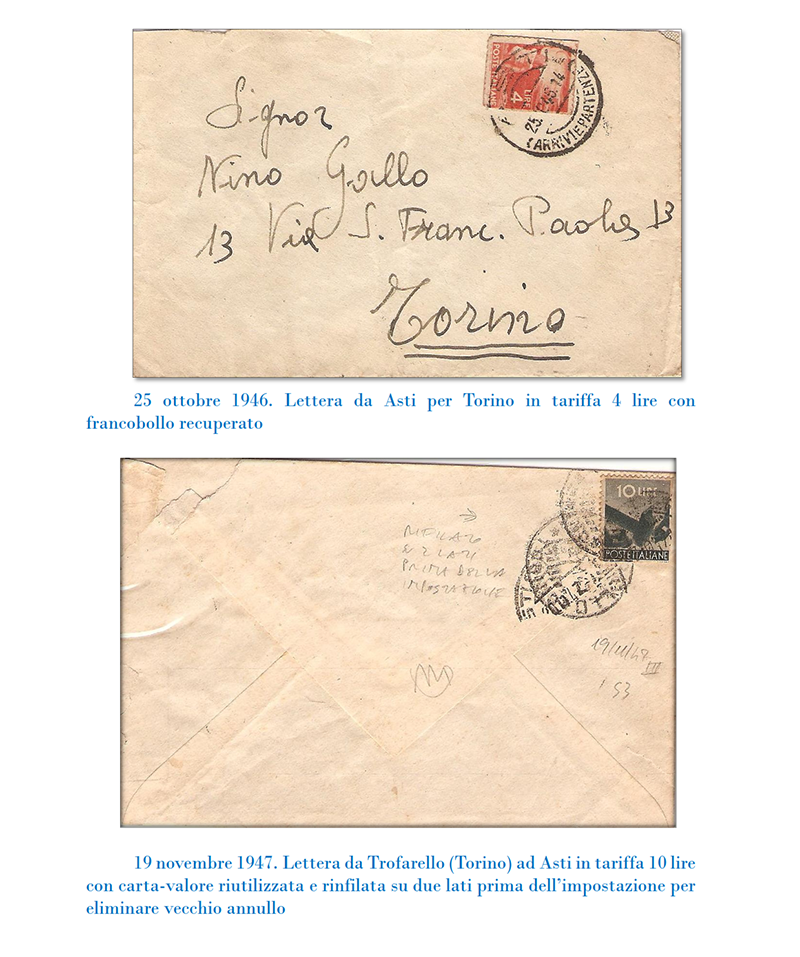 POSTE ITALIANE
LIRE
4
25
46.14
(ARRIVI E PARTENZE
Signor
Nino Gallo
13 Via S. Franc. Paola 13
Torino
25 ottobre 1946. Lettera da Asti per Torino in tariffa 4 lire con
francobollo recuperato
10 LIRE
POSTE ITALIANE
RIFILATO
SU 2 LATI
PRIMA DELLA
IMPOSTAZIONE
19/11/47
III
53
19 novembre 1947. Lettera da Trofarello (Torino) ad Asti in tariffa 10 lire
con carta-valore riutilizzata e rinfilata su due lati prima dell’impostazione per
eliminare vecchio annullo